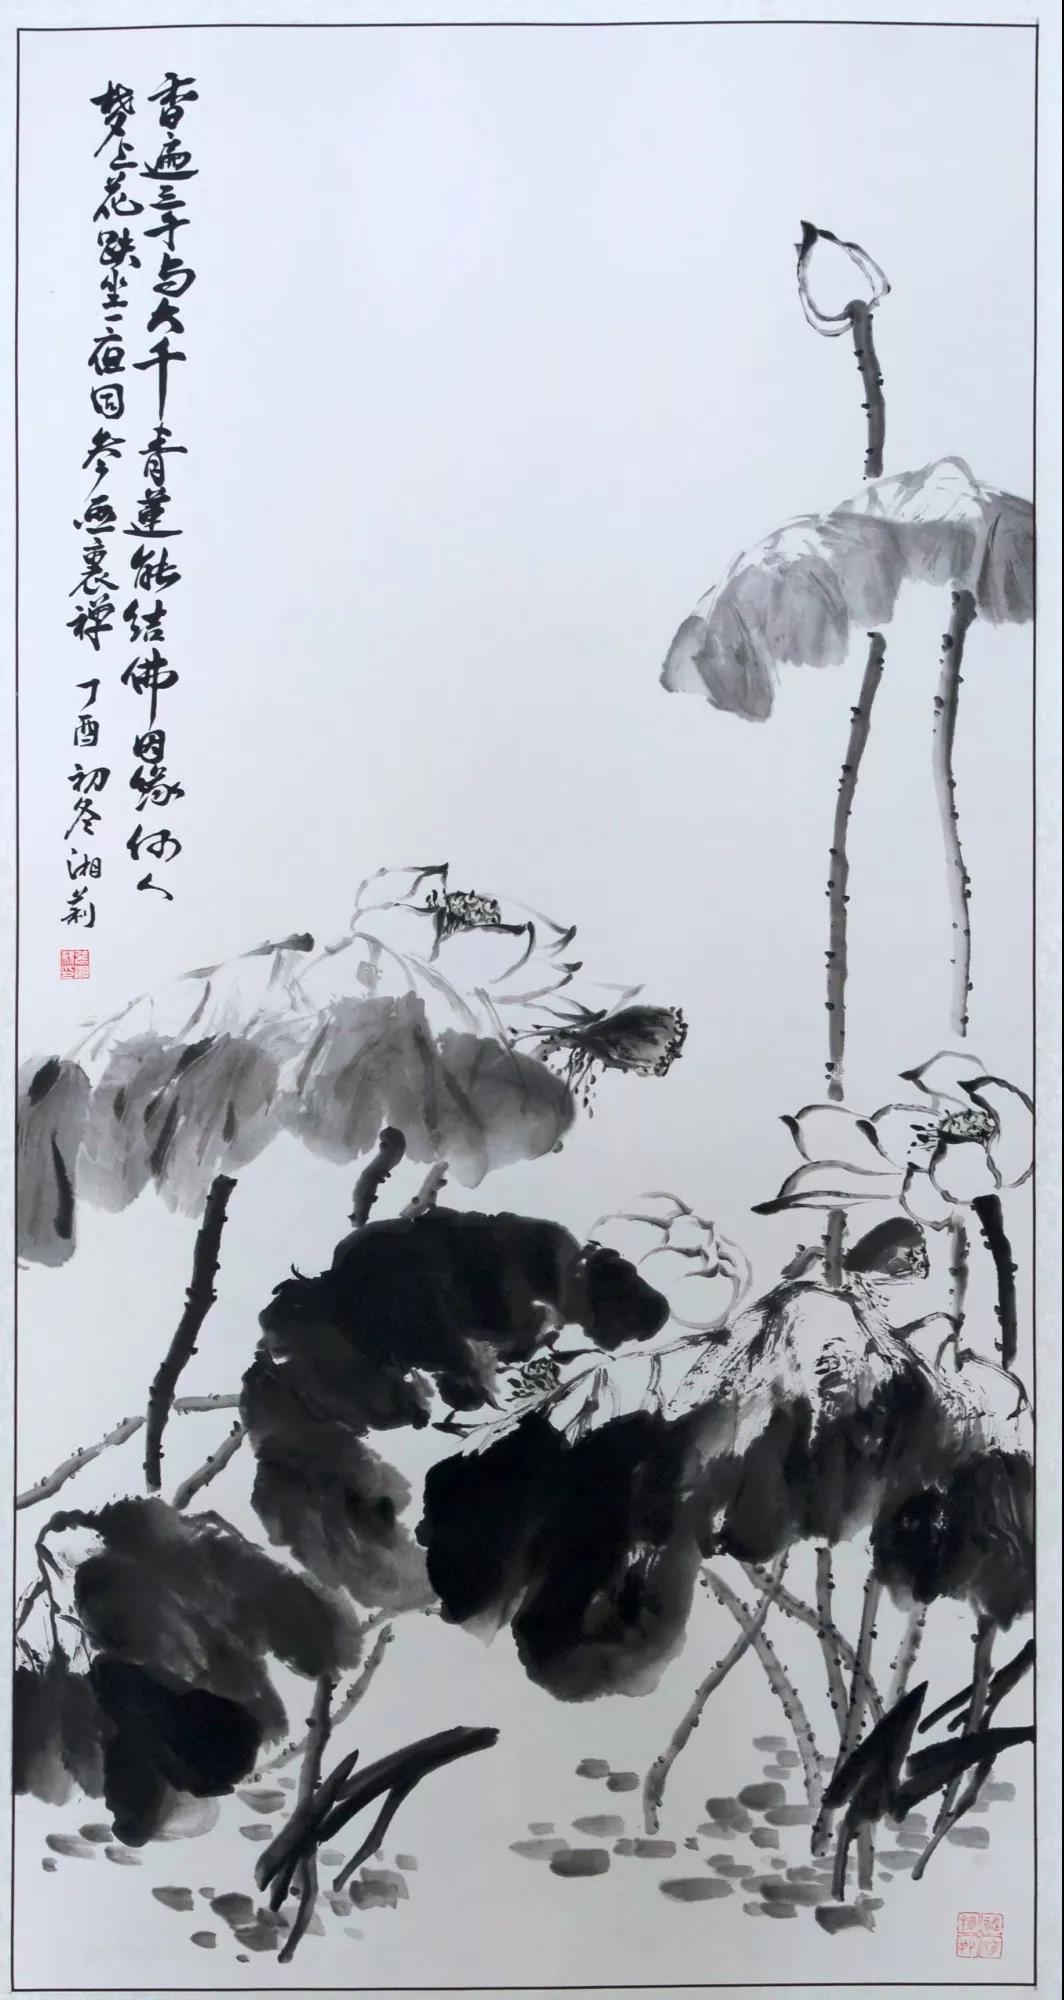 香遍三千与大千青蓮能结佛因缘何人
梦上花趺坐一夜同参画裏禅 丁酉初冬湘莉